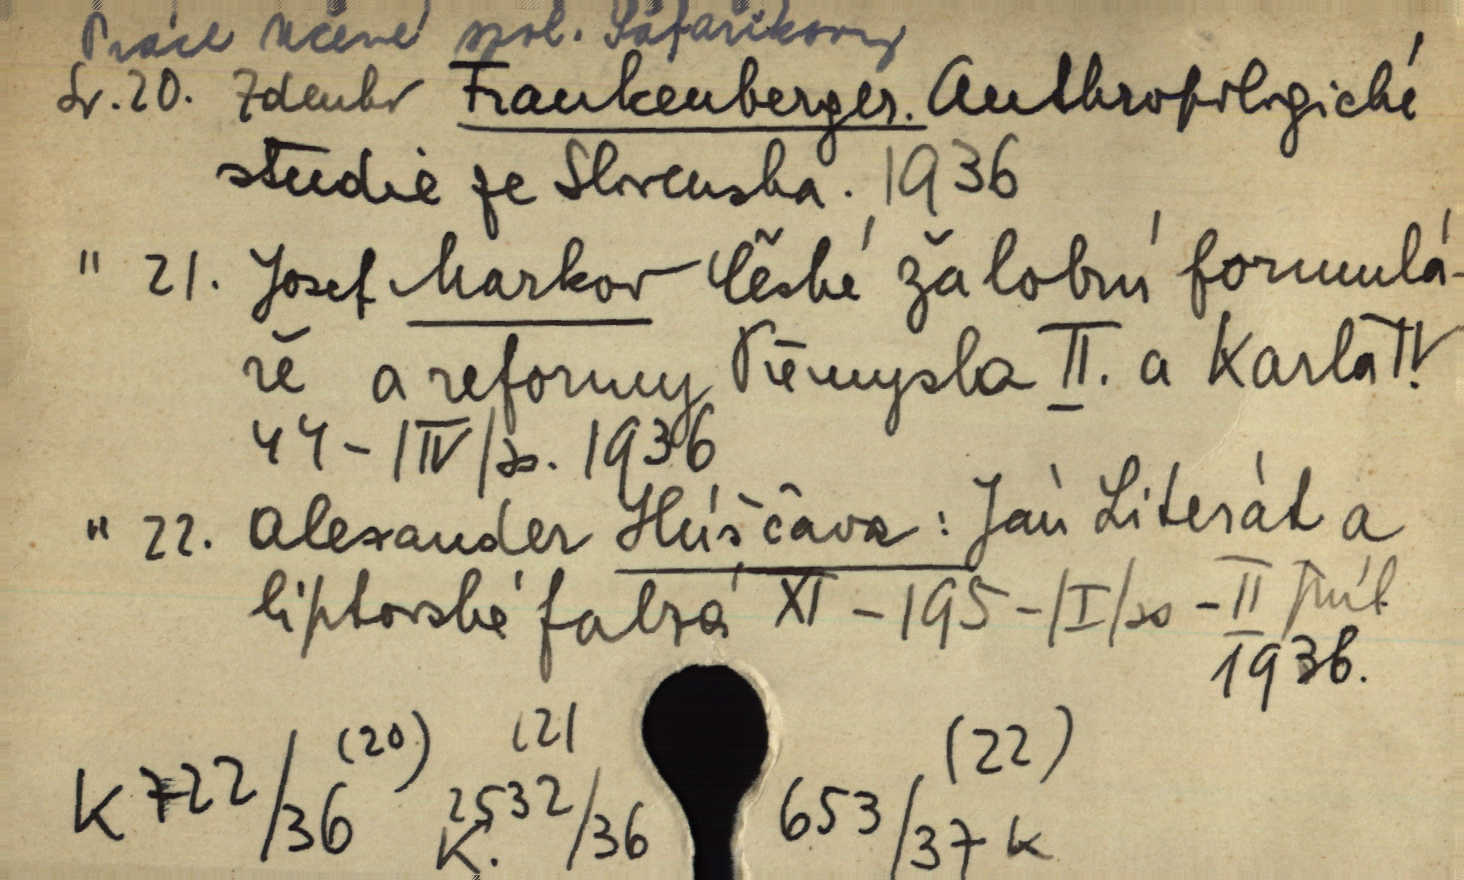 Práce Učené spol. Šafaříkovy
Sv. 20. Zdenko Frankenberger. Anthropologické
studie ze Slovenska. 1936
" 21. Josef Markov České žalobní formulá-
ře a reformy Přemysla II. a Karla IV.
44 - IIV/so. 1936
" 22. Alexander Húščava: Ján Literát a
liptovské falzá XI - 195 - /I/so - II příl.
1936.
(20) (21 (22)
K 722/36 2532/36 653/37 K
K.